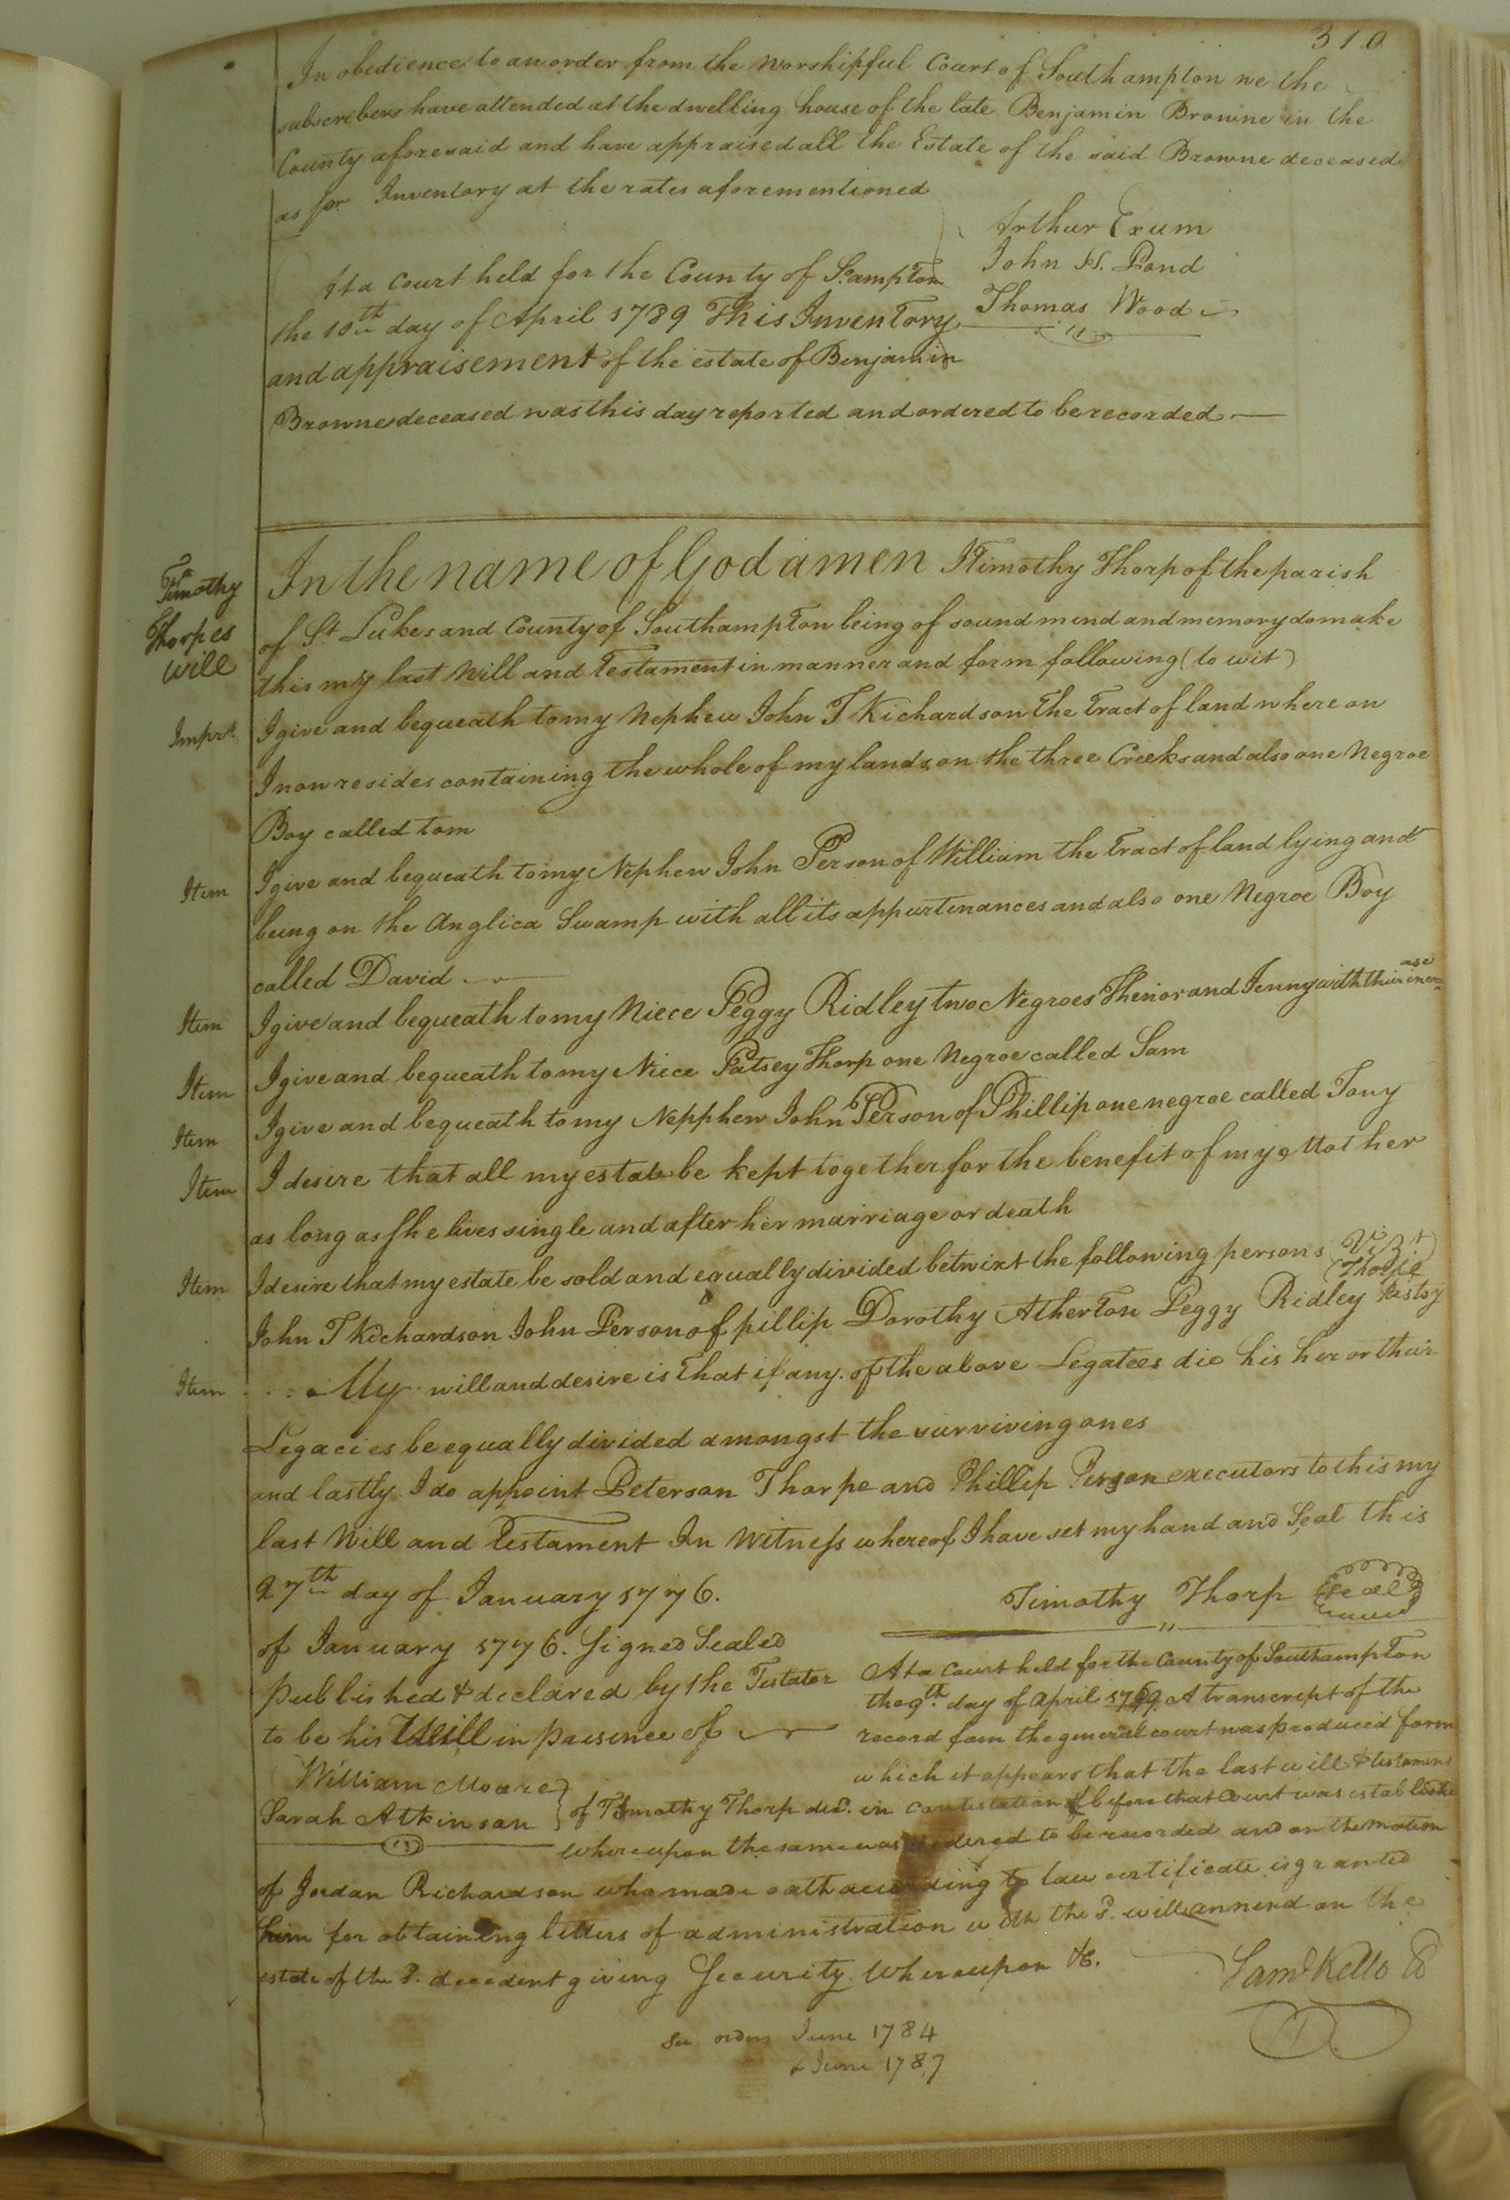 310
In obedience to an order from the worshipful Court of Southampton we the
subscribers have attended at the dwelling house of the late Benjamin Browne in the
County aforesaid and have appraised all the Estate of the said Browne deceased
as per Inventory at the rates aforementioned
Arthur Exum
John H. Pond
Thomas Wood
At a Court held for the County of S.ampton
the 10th day of April 1789 This Inventory
and appraisement of the estate of Benjamin
Browne deceased was this day reported and ordered to be recorded
Timothy
Thorpes
will
In the name of God amen I Timothy Thorp of the parish
of St. Lukes and County of Southampton being of sound mind and memory do make
this my last Will and Testament in manner and form following (to wit)
Imprs. I give and bequeath to my Nephew John T Richardson the tract of land where on
I now resides containing the whole of my lands on the three Creeks and also one Negroe
Boy called tom
Item I give and bequeath to my Nephew John Person of William the tract of land lying and
being on the Anglica Swamp with all its appurtinances and also one Negroe Boy
called David
Item I give and bequeath to my Niece Peggy Ridley two Negroes and Jenny with their increase
Item I give and bequeath to my Niece Patsey Thorp one Negroe called Sam
Item I give and bequeath to my Nepphew John Person of Phillip one negroe called Tony
Item I desire that all my estate be kept together for the benefit of my Mother
as long as She lives single and after her marriage or death
Item I desire that my estate be sold and equally divided betwixt the following persons Vizt
John T Richardson John Person of pillip Dorothy Atherton Peggy Ridley Patsy
Thorpe
Item My will and desire is that if any of the above Legatees die his her or their
Legacies be equally divided amongst the surviving ones
and lastly I do appoint Peterson Thorpe and Phillip Person executors to this my
last Will and testament In Witness whereof I have set my hand and Seal this
27th day of January 1776.
Timothy Thorp Seal
of January 1776. Signed Sealed
published & declared by the Testator
to be his Will in presence of
William Moore
Sarah Atkinson
At a Court held for the County of Southampton
the 9th. day of April 1789 A transcript of the
record from the general court was produced form
which it appears that the last will & testament
of Timothy Thorp decd. in contestation before that Court was established
whereupon the same was ordered to be recorded and on the motion
of Jordan Richardson who made oath according to law certificate is granted
him for obtaining letters of administration with the sd. will annexd on the
estate of the sd. decedent giving Security Whereupon &c.
Saml Kello CC
See orders June 1784
& June 1787